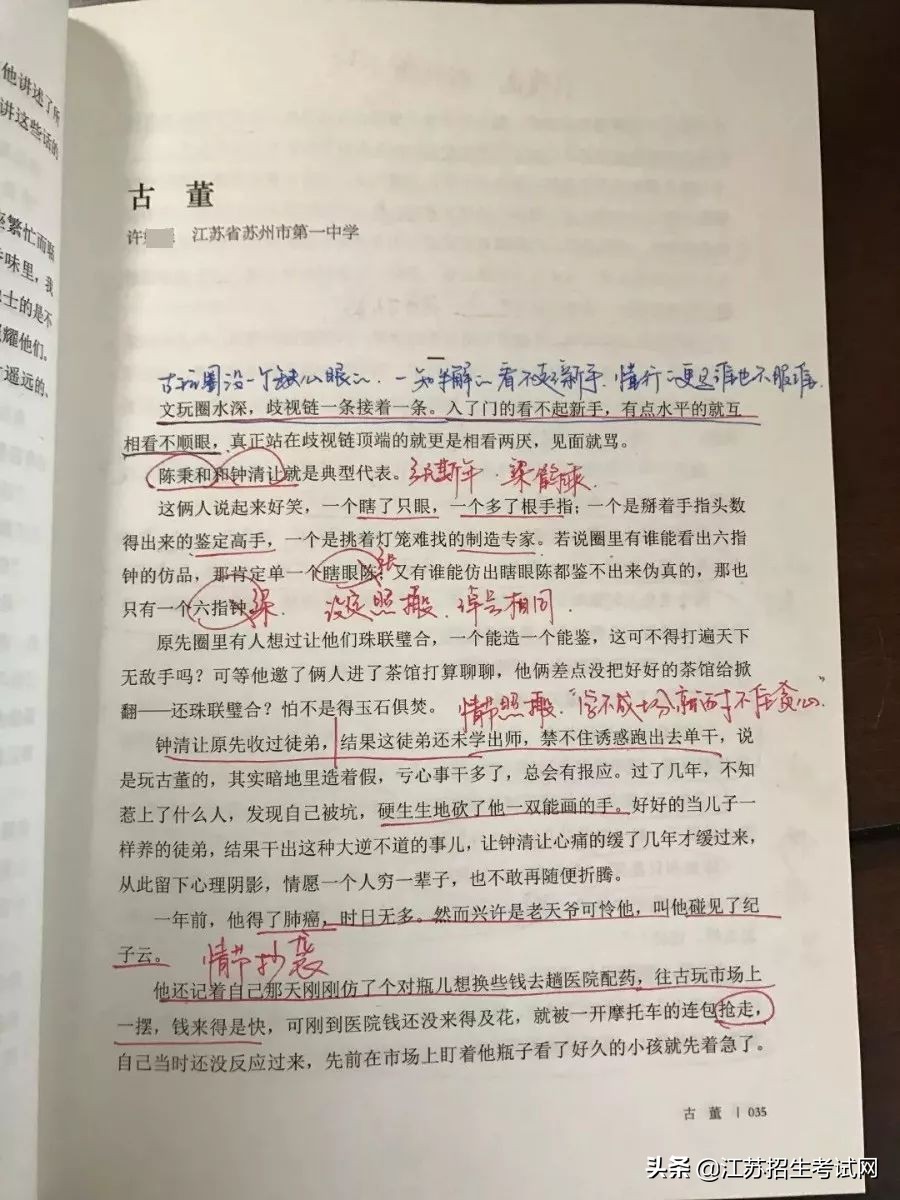 他讲述了所
讲这些话的
繁忙而
味里，我
士的是不
耀他们。
遥远的、
古 董
许 江苏省苏州市第一中学
一
古玩圈没一个缺心眼，一知半解 看不起新手，情行 更是谁也不服谁
文玩圈水深，歧视链一条接着一条。入了门的看不起新手，有点水平的就互
相看不顺眼，真正站在歧视链顶端的就更是相看两厌，见面就骂。
陈秉和和钟清让就是典型代表。 张斯年 · 梁
这俩人说起来好笑，一个瞎了只眼，一个多了根手指；一个是掰着手指头数
得出来的鉴定高手，一个是挑着灯笼难找的制造专家。若说圈里有谁能看出六指
钟的仿品，那肯定单一个瞎眼陈；又有谁能仿出瞎眼陈都鉴不出来伪真的，那也
张
只有一个六指钟。 梁 设定照搬．绰号相同．
原先圈里有人想过让他们珠联璧合，一个能造一个能鉴，这可不得打遍天下
无敌手吗？可等他邀了俩人进了茶馆打算聊聊，他俩差点没把好好的茶馆给掀
翻——还珠联璧合？怕不是得玉石俱焚。 情节照搬．“学不成十分东西才不生贪心”
钟清让原先收过徒弟，结果这徒弟还未学出师，禁不住诱惑跑出去单干，说
是玩古董的，其实暗地里造着假，亏心事干多了，总会有报应。过了几年，不知
惹上了什么人，发现自己被坑，硬生生地砍了他一双能画的手。好好的当儿子一
样养的徒弟，结果干出这种大逆不道的事儿，让钟清让心痛的缓了几年才缓过来，
从此留下心理阴影，情愿一个人穷一辈子，也不敢再随便折腾。
一年前，他得了肺癌，时日无多。然而兴许是老天爷可怜他，叫他碰见了纪
子云。 情节抄袭
他还记着自己那天刚刚仿了个对瓶儿想换些钱去趟医院配药，往古玩市场上
一摆，钱来得是快，可刚到医院钱还没来得及花，就被一开摩托车的连包抢走，
自己当时还没反应过来，先前在市场上盯着他瓶子看了好久的小孩就先着急了。
古 董 | 035
头条 @江苏招生考试网